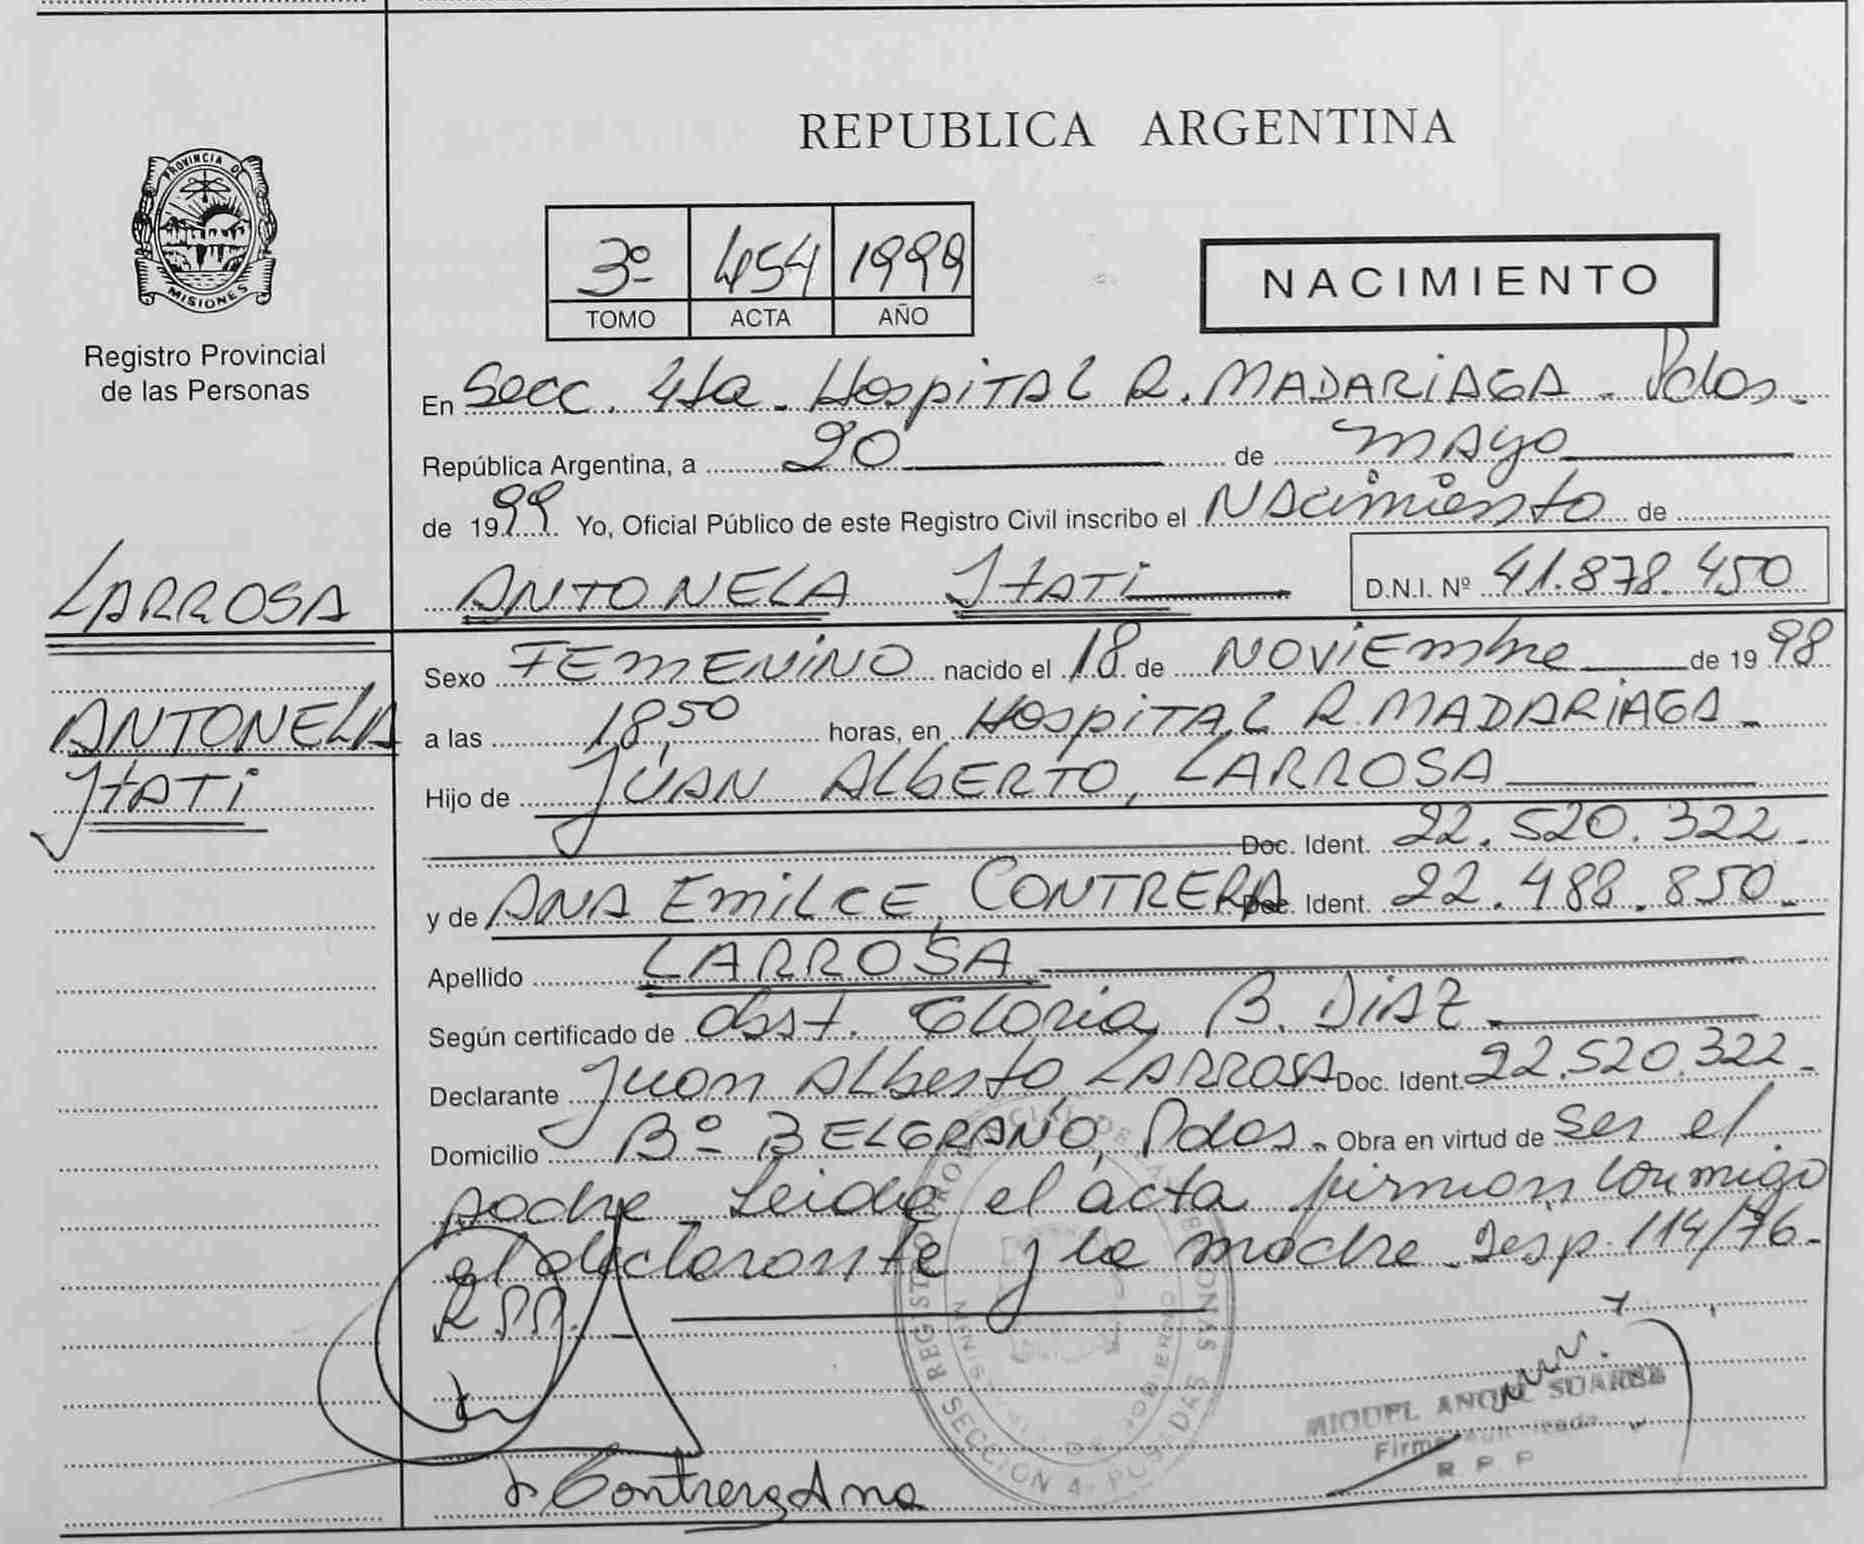 REPUBLICA ARGENTINA
PROVINCIA DE
MISIONES
Registro Provincial
de las Personas
3º 454 1999
TOMO ACTA AÑO
NACIMIENTO
En Secc. 4ta. Hospital R. MADARIAGA - Pdas.
República Argentina, a 20 de mayo
de 1999 Yo, Oficial Público de este Registro Civil inscribo el Nacimiento de
ANTONELA Itati D.N.I. Nº 41.878.450
LARROSA
ANTONELA
Itati
Sexo FEMENINO nacido el 18 de NOVIEmbre de 1998
a las 18,50 horas, en Hospital R. MADARIAGA -
Hijo de JUAN ALbERTO, LARROSA
Doc. Ident. 22.520.322.-
y de ANA EmiLCE, CONTRERA Doc. Ident. 22.488.850.-
Apellido LARROSA
Según certificado de obst. Gloria B. DiAZ
Declarante Juan Alberto LARROSA Doc. Ident. 22.520.322.-
Domicilio Bº BELGRANO, Pdas. Obra en virtud de Ser el
padre. Leida el acta firman conmigo
el declarante y la madre. Disp. 114/76.-
R.P.P.
REGISTRO PROVINCIAL DE LAS PERSONAS
SECCION 4- POSADAS
Contrera Ana
MIGUEL ANGEL SUAREZ
Firma Autorizada
R P P